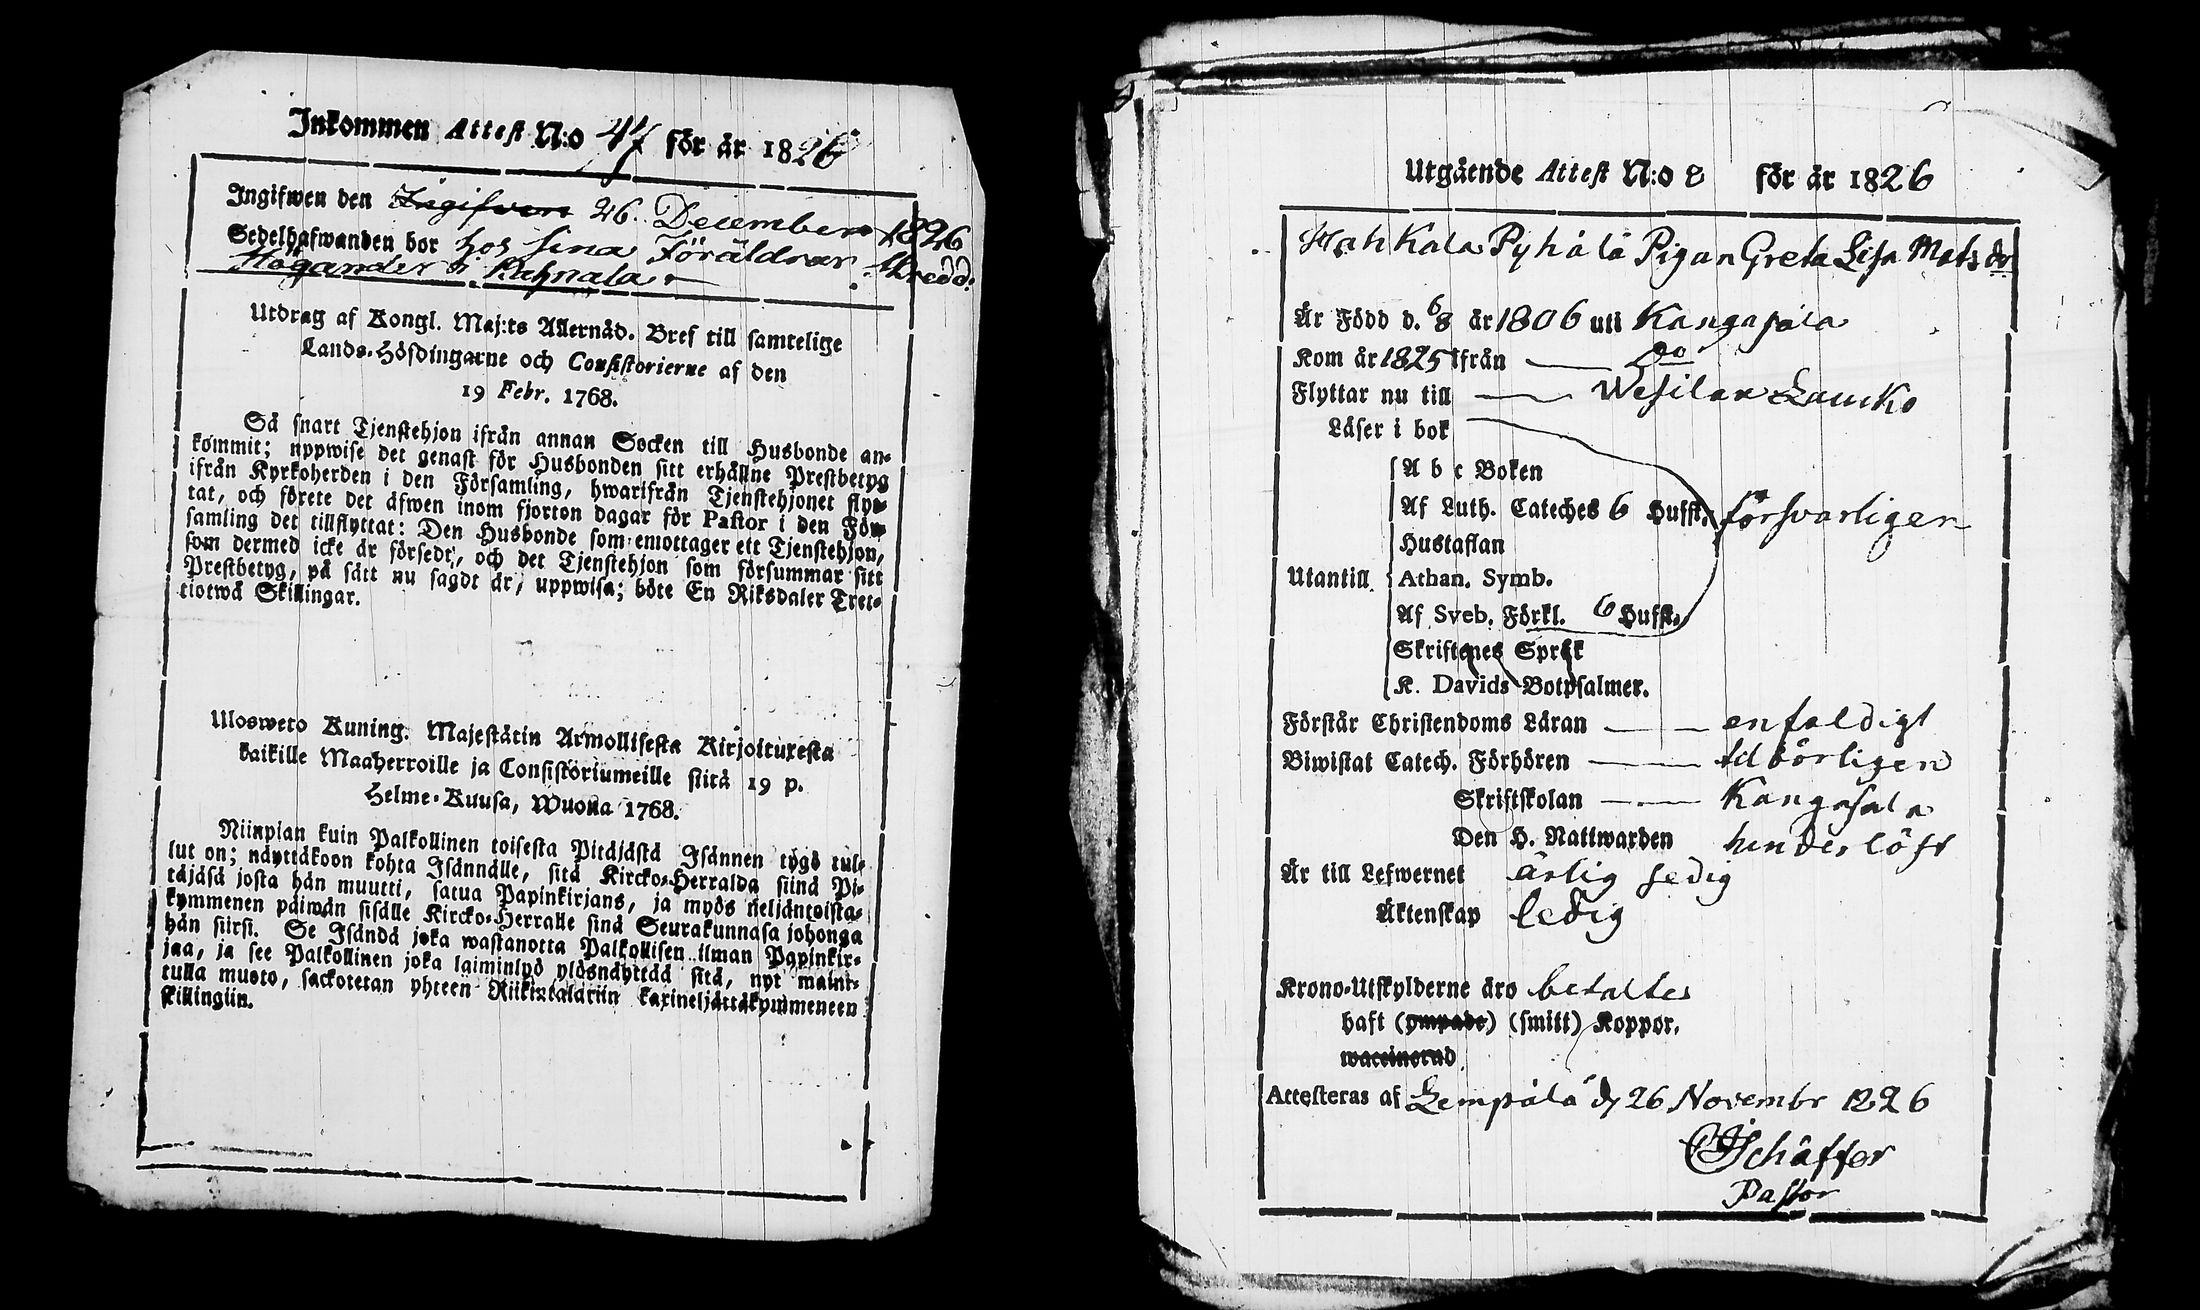 Inkommen Attest N:o 47 för år 1826
Ingifwen den Ingifven 26 December 1826
Sedelhafwanden bor hos sina Föräldrar
Högander i Rahnala
Utdrag af Kongl. Maj:ts Allernåd. Bref till samtelige
Lands-Höfdingarne och Consistorierne af den
19 Febr. 1768.
Så snart Tjenstehjon ifrån annan Socken till Husbonde an-
kommit; uppwise det genast för Husbonden sitt erhållne Prestbetyg
ifrån Kyrkoherden i den Församling, hwarifrån Tjenstehjonet flyt-
tat, och förete det äfwen inom fjorton dagar för Pastor i den För-
samling det tillflyttat: Den Husbonde som emottager ett Tjenstehjon,
som dermed icke är försedt, och det Tjenstehjon som försummar sitt
Prestbetyg, på sätt nu sagdt är, uppwisa; böte En Riksdaler Tret-
tiotwå Skillingar.
Ulosweto Kuning. Majestätin Armollisesta Kirjoituxesta
kaikille Maaherroille ja Consistoriumeille siitä 19 p.
Helme-Kuusa, Wuona 1768.
Niinpian kuin Palkollinen toisesta Pitäjästä Isännen tygö tul-
lut on; näyttäköön kohta Isännälle, sitä Kircko-Herralda siinä Pi-
täjäsä josta hän muutti, saatua Papinkirjans, ja myös neljäntoista-
kymmenen päiwän sisälle Kircko-Herralle sinä Seurakunnasa johonga
hän siirsi. Se Isändä joka wastanotta Palkollisen ilman Papinkir-
jaa, ja see Palkollinen joka laiminlyö ylösnäyttää sitä, nyt maini-
tulla muoto, sackotetan yhteen Riikintalariin kaxineljättäkymmeneen
skillingiin.
Utgående Attest N:o 8 för år 1826
Hahkala Pyhälä Pigan Greta Lisa Matsdr
Är Född d. 6/8 år 1806 uti Kangasala
Kom år 1825 ifrån Do
Flyttar nu till Wesilax Laucko
Läser i bok
A b c Boken
Af Luth. Cateches 6 Hufst. försvarligen
Hustaflan
Utantill Athan. Symb.
Af Sveb. Förkl. 6 Hufst.
Skriftenes Språk
K. Davids Botpsalmer.
Förstår Christendoms Läran enfaldigt
Biwistat Catech. Förhören tilbörligen
Skriftskolan Kangasala
Den H. Nattwarden hinderlöst
Är till Lefwernet ärlig sedig
Äktenskap ledig
Krono-Utskylderne äro betaltes
haft (ympade) (smitt) Koppor.
waccinerad
Attesteras af Lempälä d 26 Novembr 1826
Schäffer
Pastor